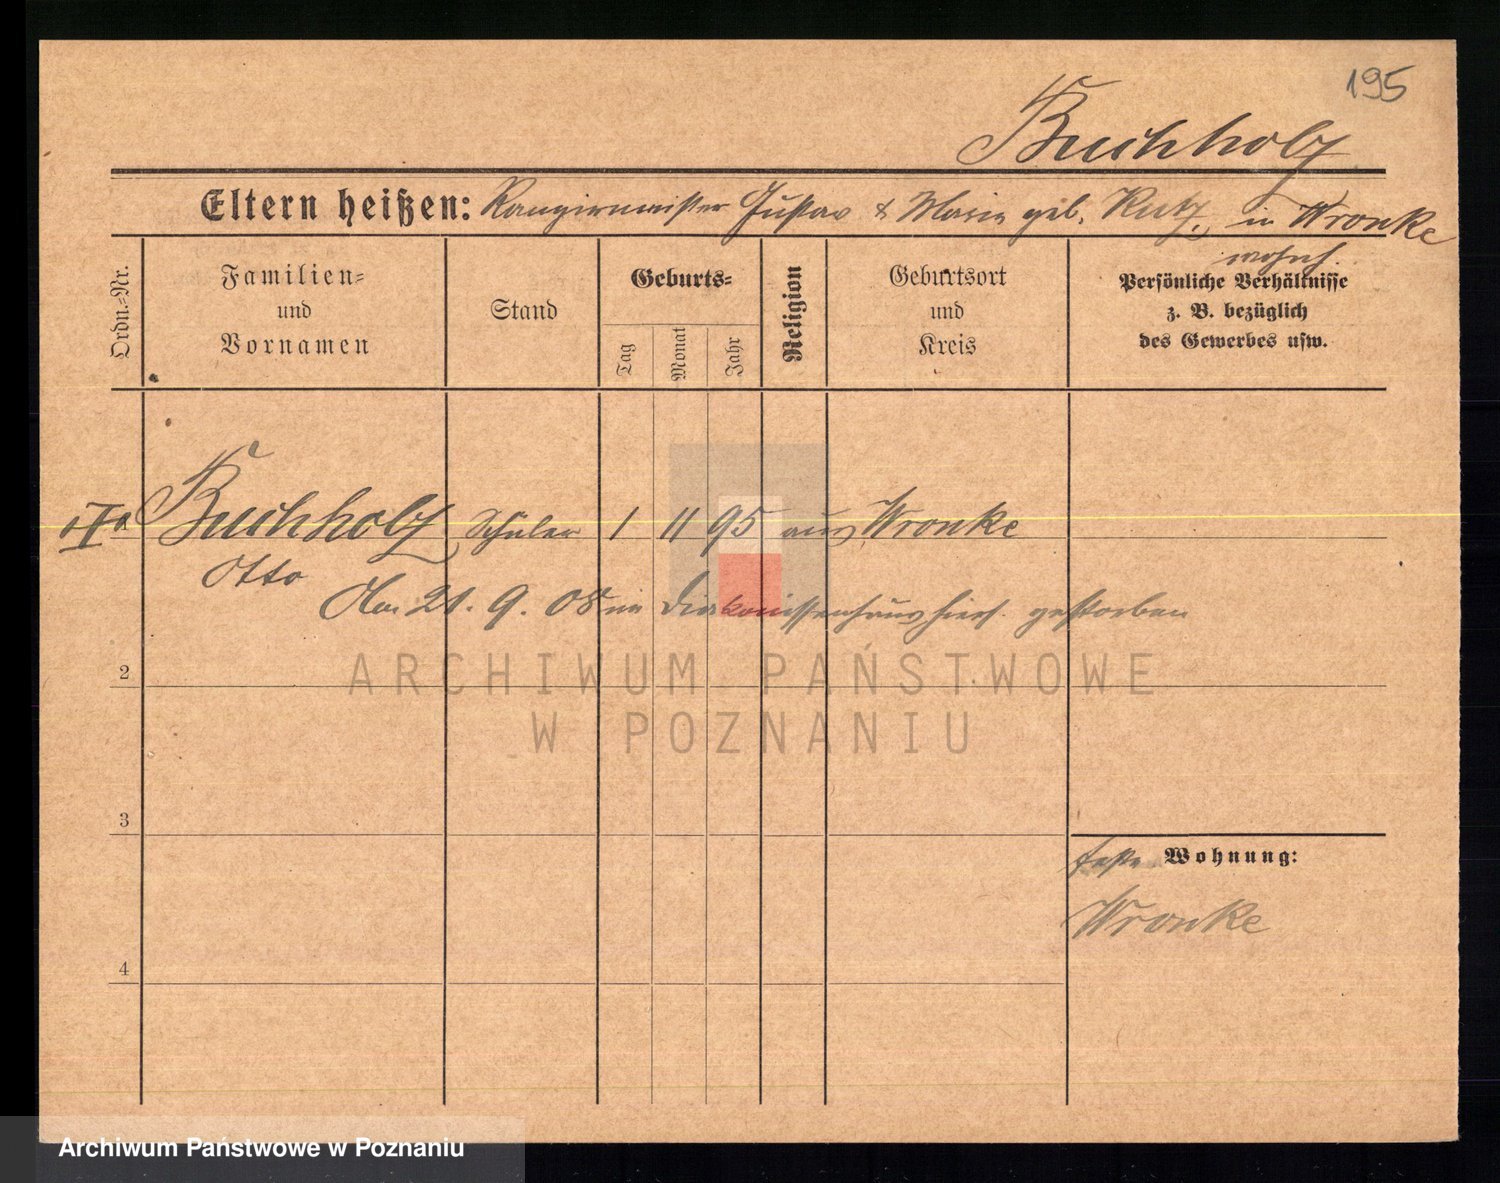 195
Buchholz
Eltern heißen: Rangiermeister Gustav & Marie geb. Rutz, in Wronke
wohnh.
Ordn.-Nr.
Familien-
und
Vornamen
Stand
Geburts-
Tag
Monat
Jahr
Religion
Geburtsort
und
Kreis
Persönliche Verhältnisse
z. B. bezüglich
des Gewerbes usw.
Buchholz Schüler 1 11 95 aus Wronke
Otto
Am 21. 9. 08 im Diakonissenhaus hies. gestorben
ARCHIWUM PAŃSTWOWE
2
W POZNANIU
3
feste Wohnung:
Wronke
4
Archiwum Państwowe w Poznaniu